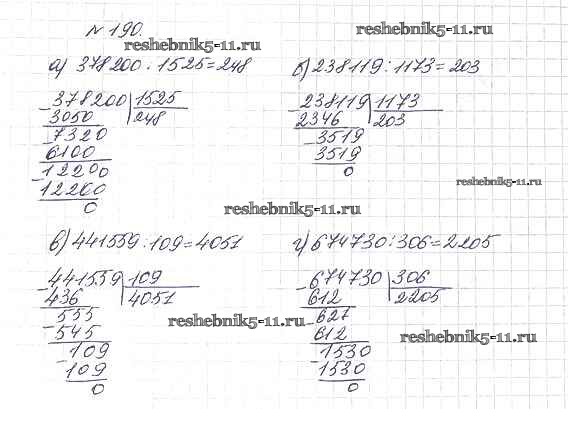 №190.
reshebnik5-11.ru
reshebnik5-11.ru
а) 378200:1525=248
б) 238119:1173=203
378200 | 1525
- 3050 | 248
- 7320
6100
- 12200
12200
0
238119 | 1173
- 2346 | 203
- 3519
3519
0
reshebnik5-11.ru
reshebnik5-11.ru
в) 441559:109=4051
г) 674730:306=2205
- 441559 | 109
436 | 4051
- 555
545
- 109
109
0
- 674730 | 306
612 | 2205
- 627
612
- 1530
1530
0
reshebnik5-11.ru
reshebnik5-11.ru